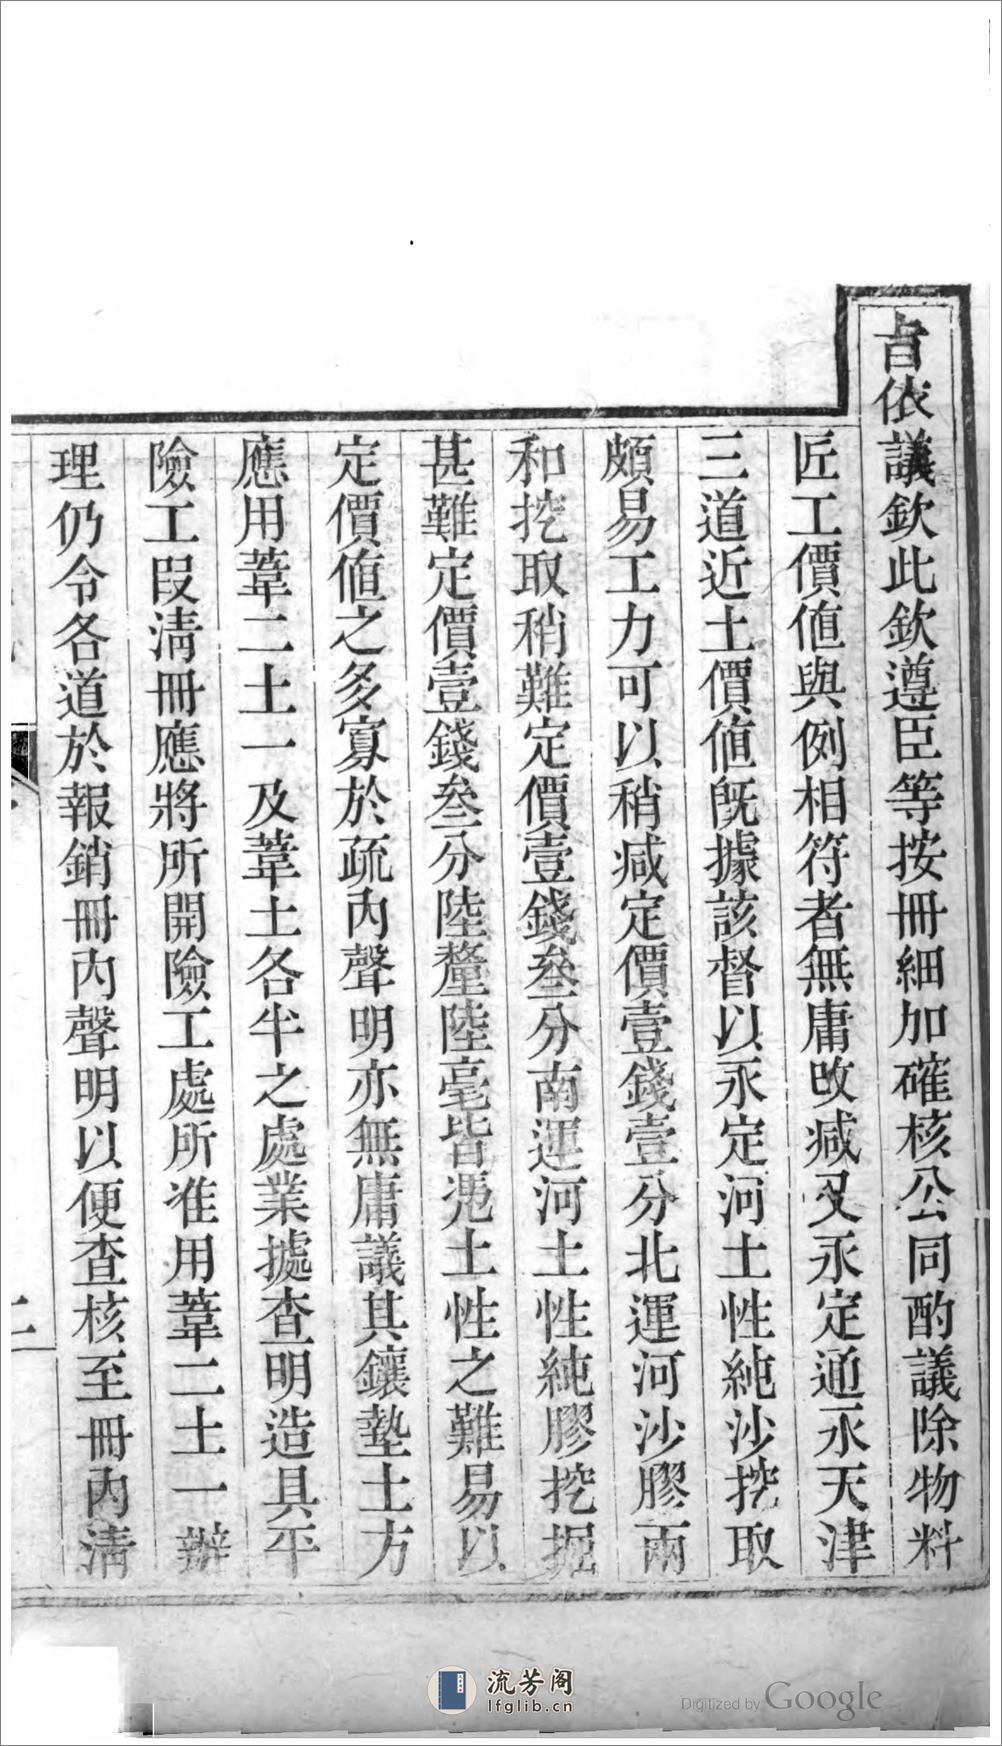 旨依議欽此欽遵臣等按冊細加確核公同酌議除物料
匠工價值與例相符者無庸改减又永定通永天津
三道近土價值旣據該督以永定河土性純沙挖取
頗易工力可以稍减定價壹錢壹分北運河沙膠兩
和挖取稍難定價壹錢叁分南運河土性純膠挖掘
甚難定價壹錢叁分陸釐陸毫皆慿土性之難易以
定價値之多寡於疏內聲明亦無庸議其鑲墊土方
應用葦二土一及葦土各半之處業據查明造具平
險工段淸冊應將所開險工處所准用葦二土一辦
理仍令各道於報銷冊內聲明以便查核至冊內淸
二
流芳阁
lfglib.cn
Digitized by Google